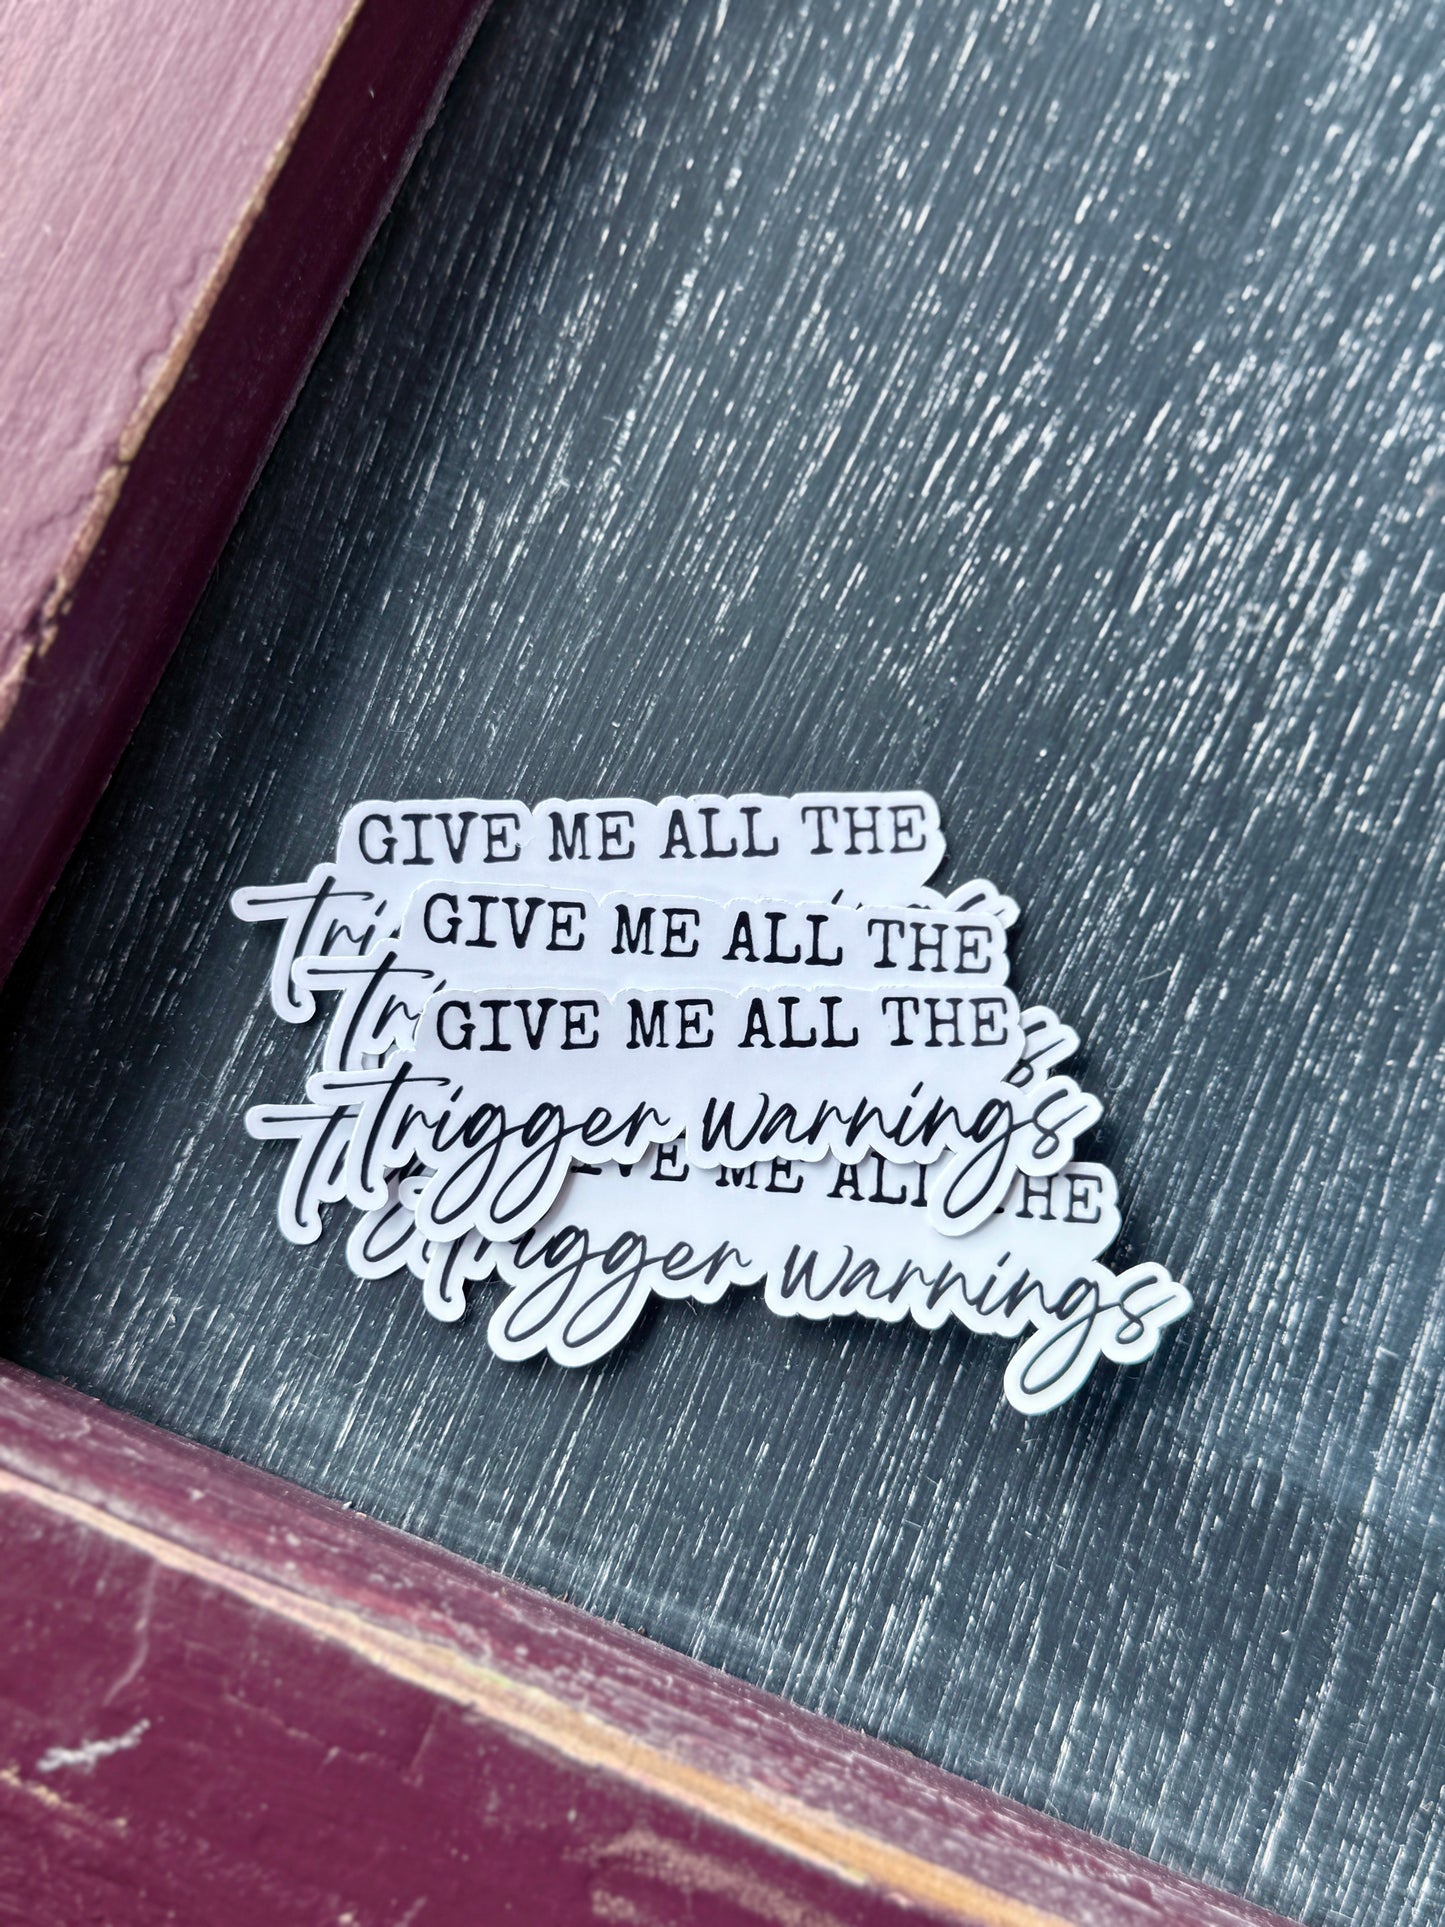 GIVE ME ALL THE
GIVE ME ALL THE
GIVE ME ALL THE
trigger warnings
ME THE
trigger warnings